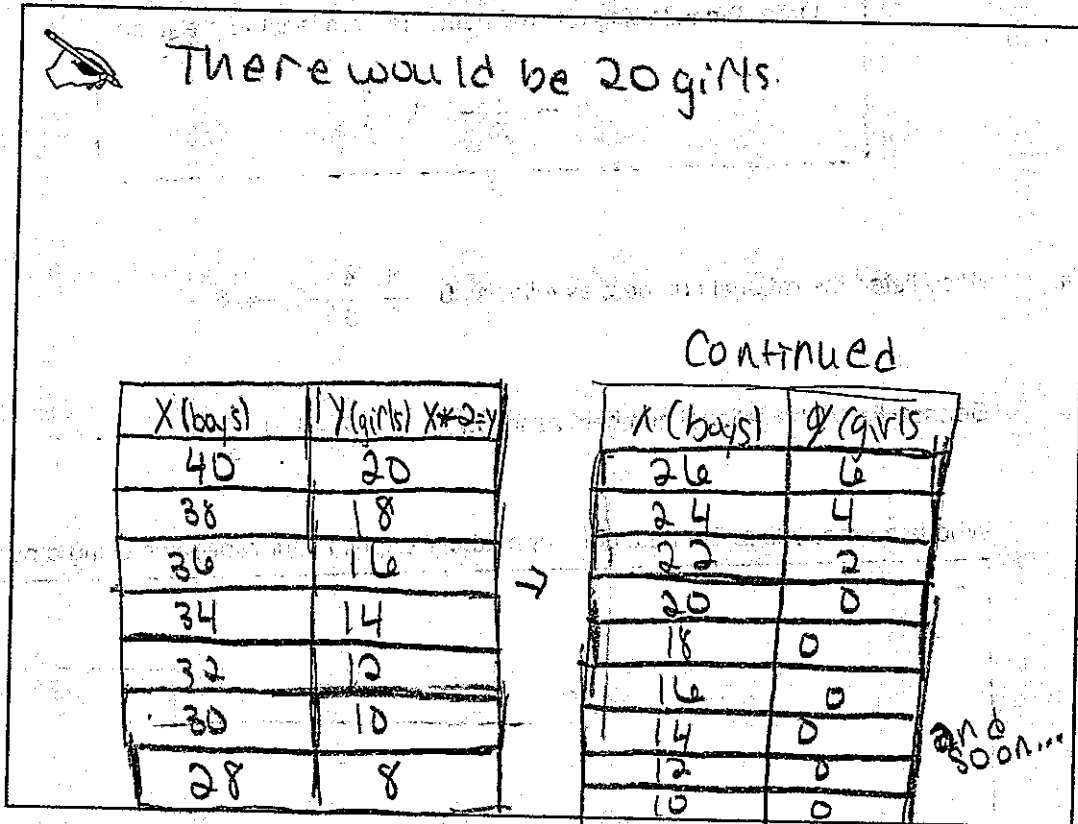 There would be 20 girls.
Continued
X (boys) Y (girls) X*2=Y
40 20
38 18
36 16
34 14
32 12
30 10
28 8
X (boys) Y (girls
26 6
24 4
22 2
20 0
18 0
16 0
14 0
12 0
10 0
and
soon...